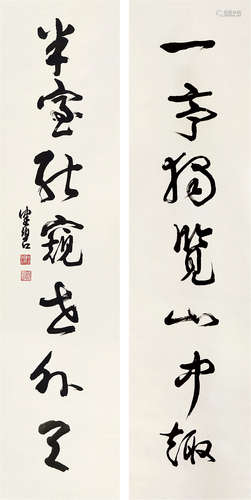 一亭独览山中趣
半室能窥世外天